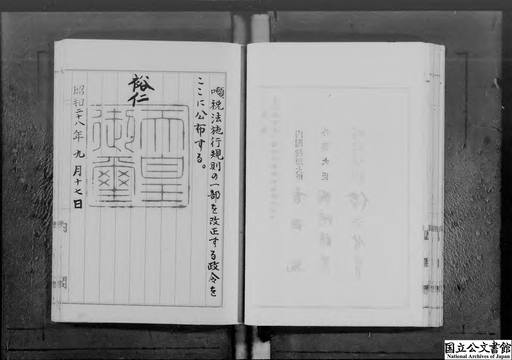 噸税法施行規則の一部を改正する政令を
ここに公布する。
裕仁
天皇
御璽
昭和二十八年九月十七日
国立公文書館
National Archives of Japan